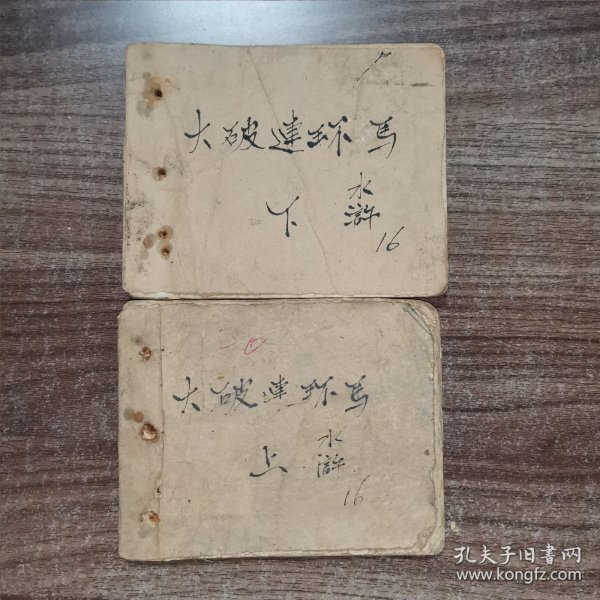 大破连环马
下
水
浒
16
大破连环马
上
水
浒
16
孔夫子旧书网
www.kongfz.com